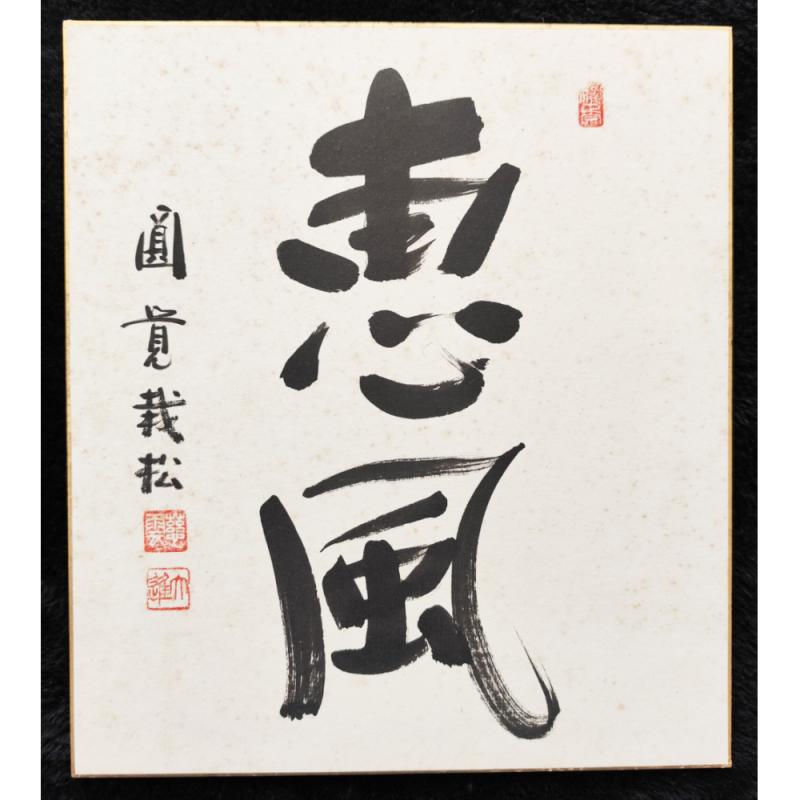 惠風
圓覚栽松